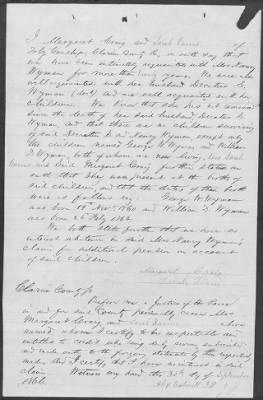 I Margaret Craig and Sarah of
Toby Township, Clarion County Pa. on oath say that
we have been intimately acquainted with Mrs Nancy
Wyman for more than years. We were also
well acquainted with her husband
Wyman (dec'd) and are well acquainted with her
children. We know that she has not married
since the death of her said husband
Wyman, and that there are no children surviving
of said and Nancy Wyman, except only
the children named George W Wyman and William
D. Wyman, both of whom are now living,
and said Margaret Craig further states on
oath that she was present at the births of
said children, and that the dates of their births
were as follows viz: George W. Wyman
was born 15th Nov. 1860 and William D. Wyman
was born 25 July 1862.
We both state further that we have no
interest whatever in said Mrs Nancy Wyman's
claim for additional pension on account
of said children.
Margaret Craig
Sarah
Clarion County ss
Before me a Justice of the Peace
in and for said County personally came Mrs
Margaret Craig and Sarah whose
names, whom I certify to be respectable and
entitled to credit who being duly sworn subscribed
and made oath to the foregoing statements by them respectively
made and I certify that I have no interest in said
claim. Witness my hand the 25th day of September
1866.